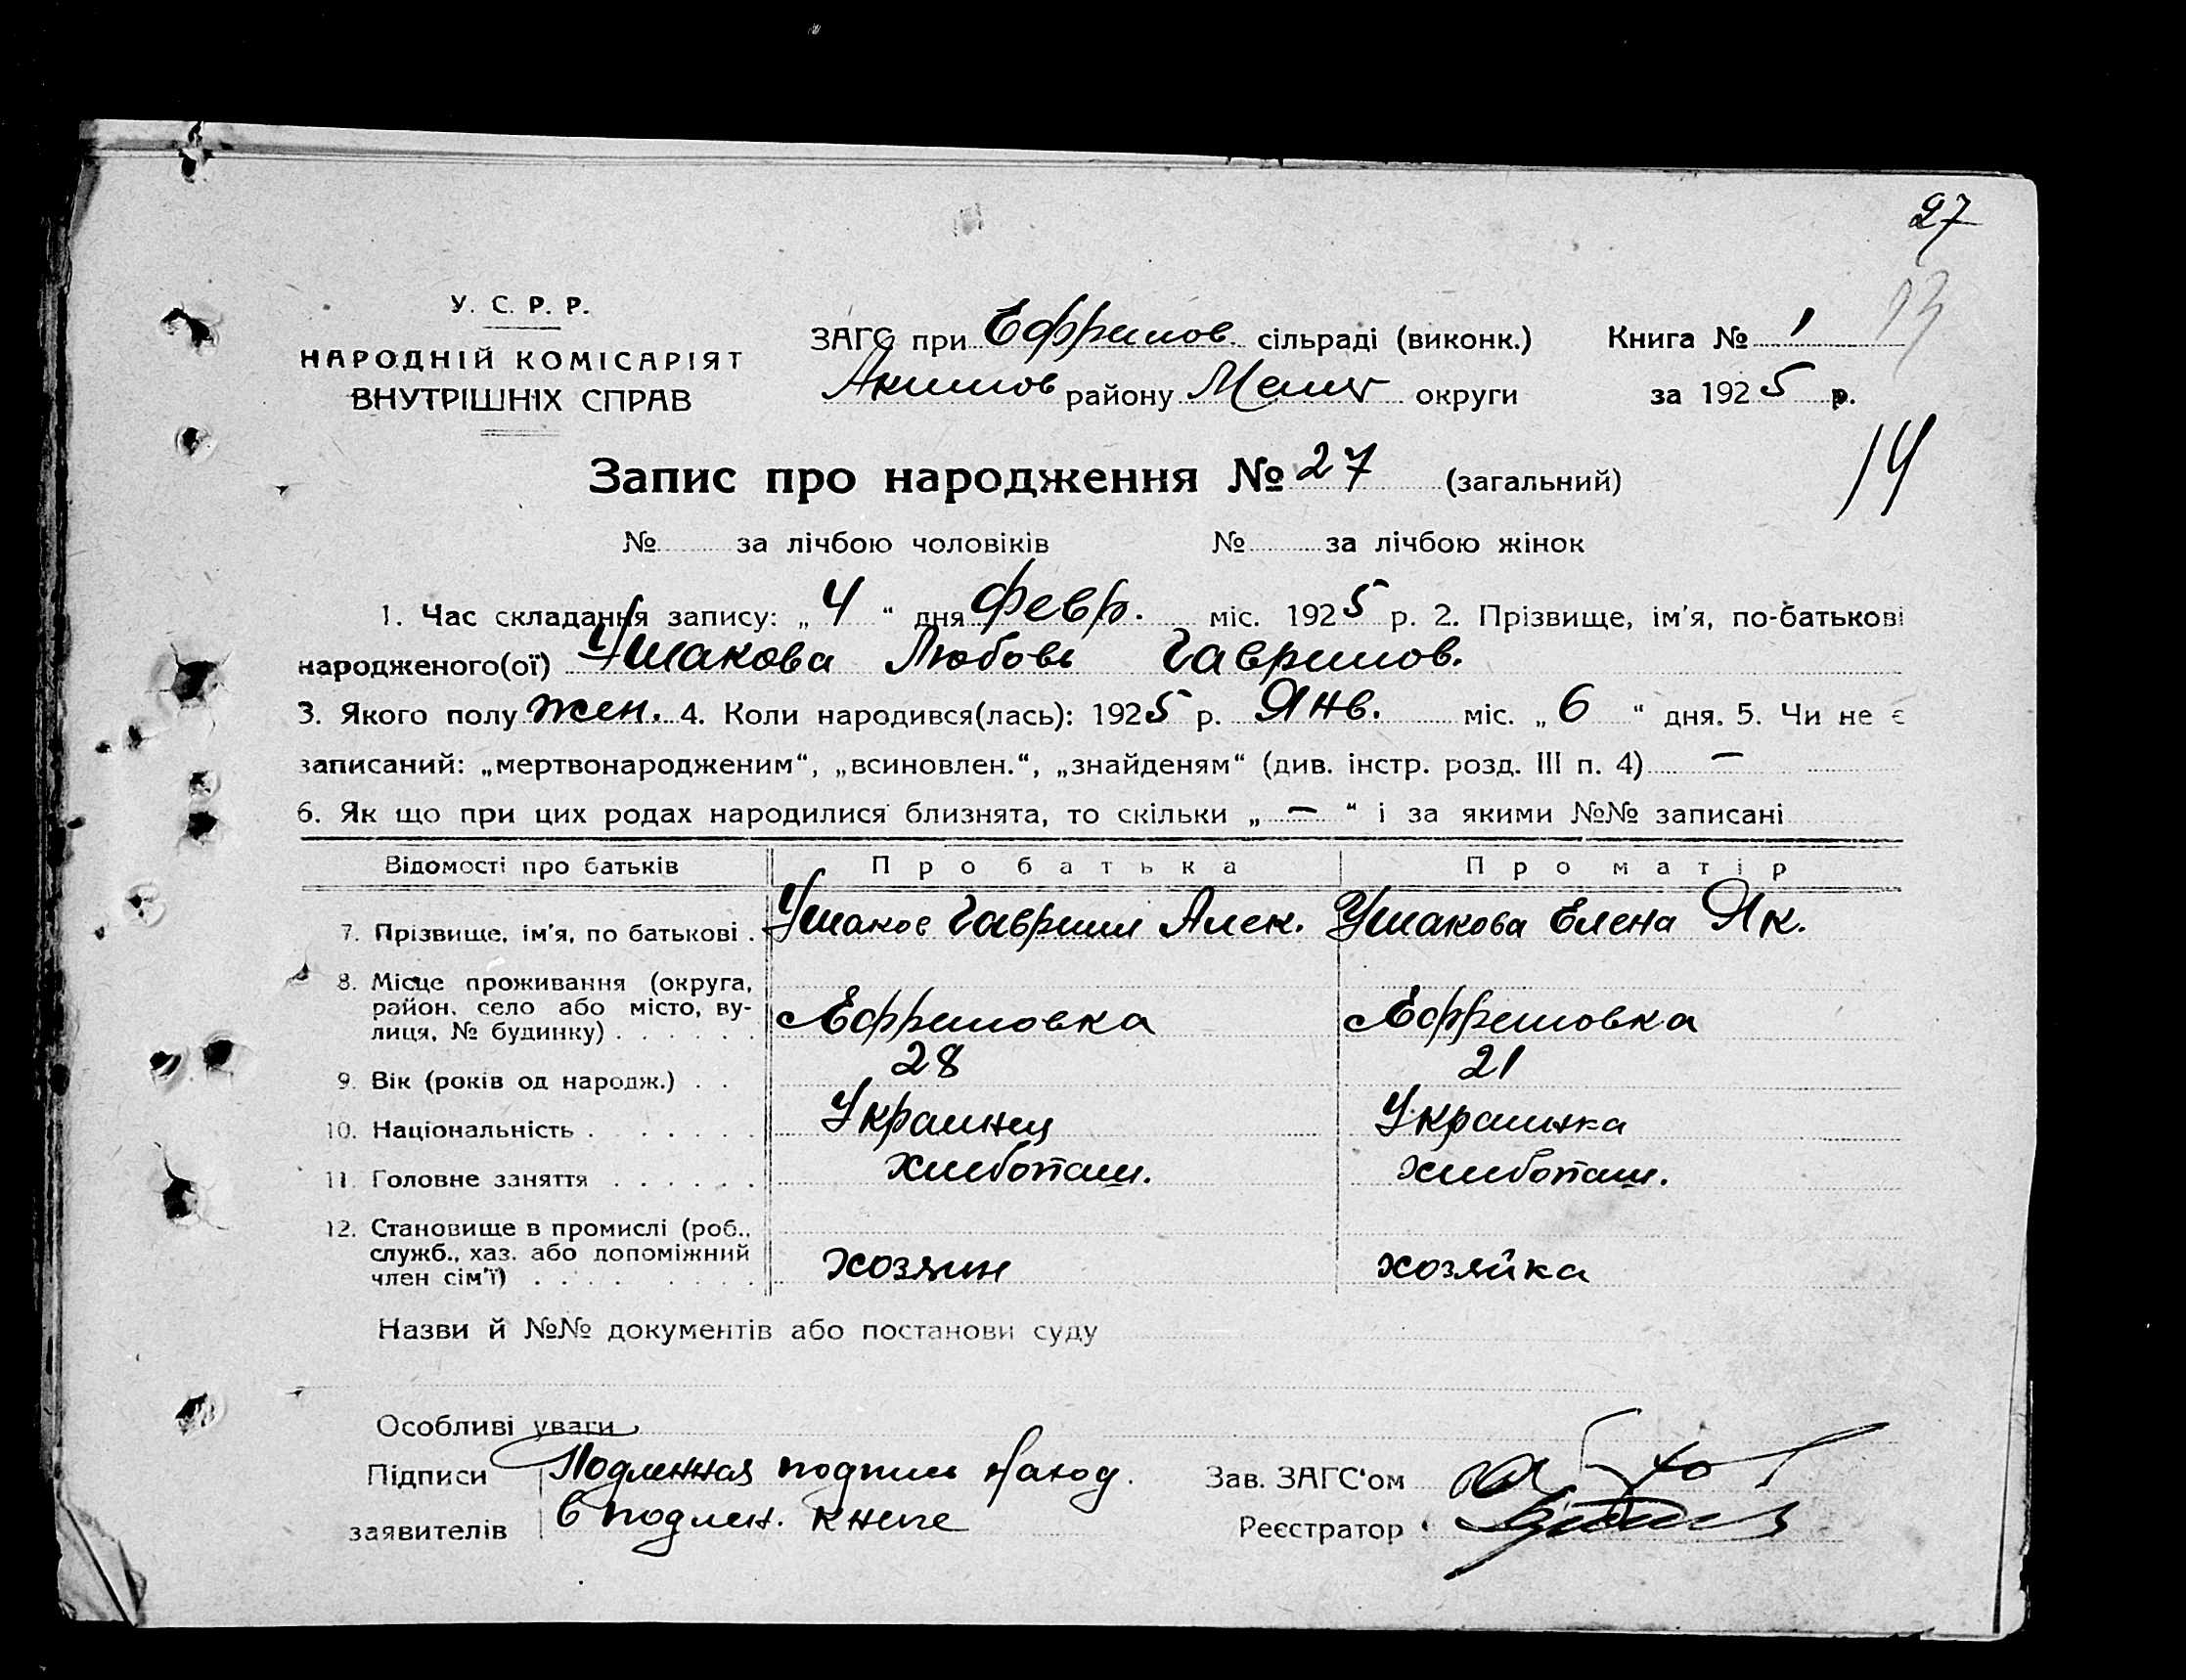 27
13
У. С. Р. Р.
НАРОДНІЙ КОМІСАРІЯТ
ВНУТРІШНІХ СПРАВ
ЗАГС при Ефремов. сільраді (виконк.) Книга № 1
Акимов району Мелит округи за 1925 р.
14
Запис про народження № 27 (загальний)
№ за лічбою чоловіків № за лічбою жінок
1. Час складання запису: „4“ дня Февр. міс. 1925 р. 2. Прізвище, ім'я, по-батькові
народженого(ої) Ушакова Любовь Гаврилов.
3. Якого полу жен. 4. Коли народився(лась): 1925 р. Янв. міс. „6“ дня. 5. Чи не є
записаний: „мертвонародженим“, „всиновлен.“, „знайденям“ (див. інстр. розд. III п. 4) —
6. Як що при цих родах народилися близнята, то скільки „—“ і за якими №№ записані
Відомості про батьків Про батька Про матір
7. Прізвище, ім'я, по батькові . Ушаков Гавриил Алек. Ушакова Елена Як.
8. Місце проживання (округа,
район, село або місто, ву-
лиця, № будинку) . . . . . . Ефремовка Ефремовка
9. Вік (років од народж.) . . 28 21
10. Національність . . . . . . Украинец Украинка
11. Головне заняття . . . . . . Хлибопаш. Хлибопаш.
12. Становище в промислі (роб.,
служб., хаз. або допоміжний
член сім'ї) . . . . . . хозяин хозяйка
Назви й №№ документів або постанови суду
Особливі уваги
Підписи Подленная подпись наход. Зав. ЗАГС'ом
заявителів в подлен. книге Реєстратор